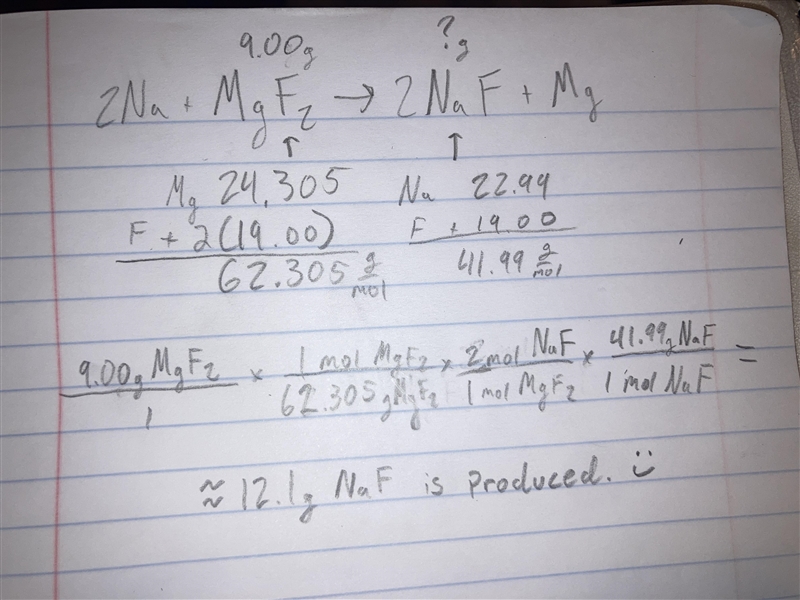 9.00g ?g
2Na + MgF₂ → 2NaF + Mg
↑ ↑
Mg 24.305 Na 22.99
F + 2(19.00) F + 19.00
62.305 g/mol 41.99 g/mol
9.00g MgF₂/1 × 1 mol MgF₂/62.305g MgF₂ × 2 mol NaF/1 mol MgF₂ × 41.99g NaF/1 mol NaF =
≈ 12.1g NaF is produced. Ü